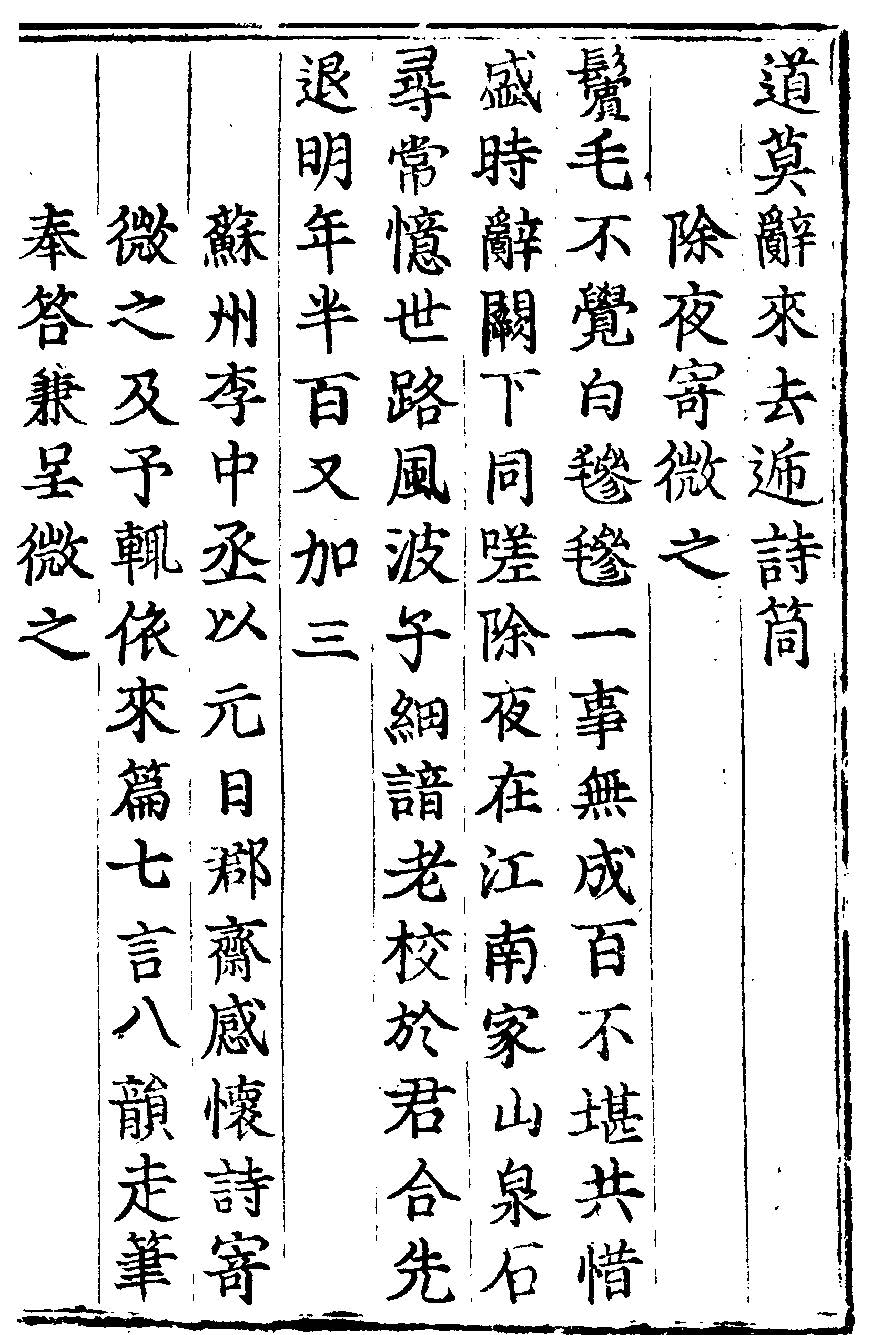 道莫辭來去遞詩筒
除夜寄微之
鬢毛不覺白毿毿一事無成百不堪共惜
盛時辭闕下同嗟除夜在江南家山泉石
尋常憶世路風波子細諳老校於君合先
退明年半百又加三
蘇州李中丞以元日郡齋感懷詩寄
微之及予輒依來篇七言八韻走筆
奉答兼呈微之